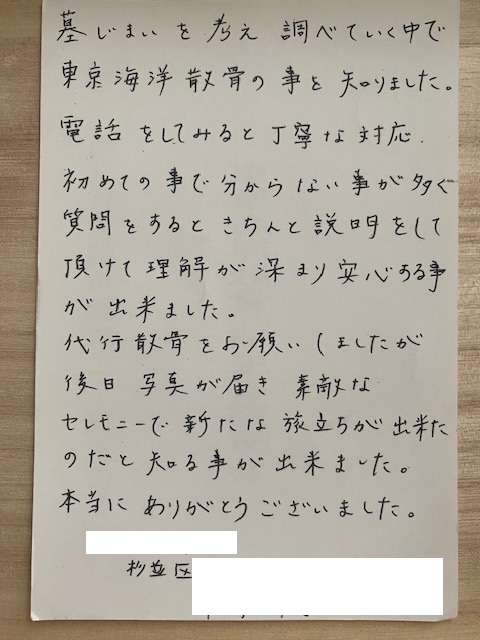 墓じまいを考え調べていく中で
東京海洋散骨の事を知りました。
電話をしてみると丁寧な対応.
初めての事で分からない事が多く
質問をするときちんと説明をして
頂けて理解が深まり安心する事
が出来ました。
代行散骨をお願いしましたが
後日写真が届き素敵な
セレモニーで新たな旅立ちが出来た
のだと知る事が出来ました。
本当にありがとうございました。
杉並区